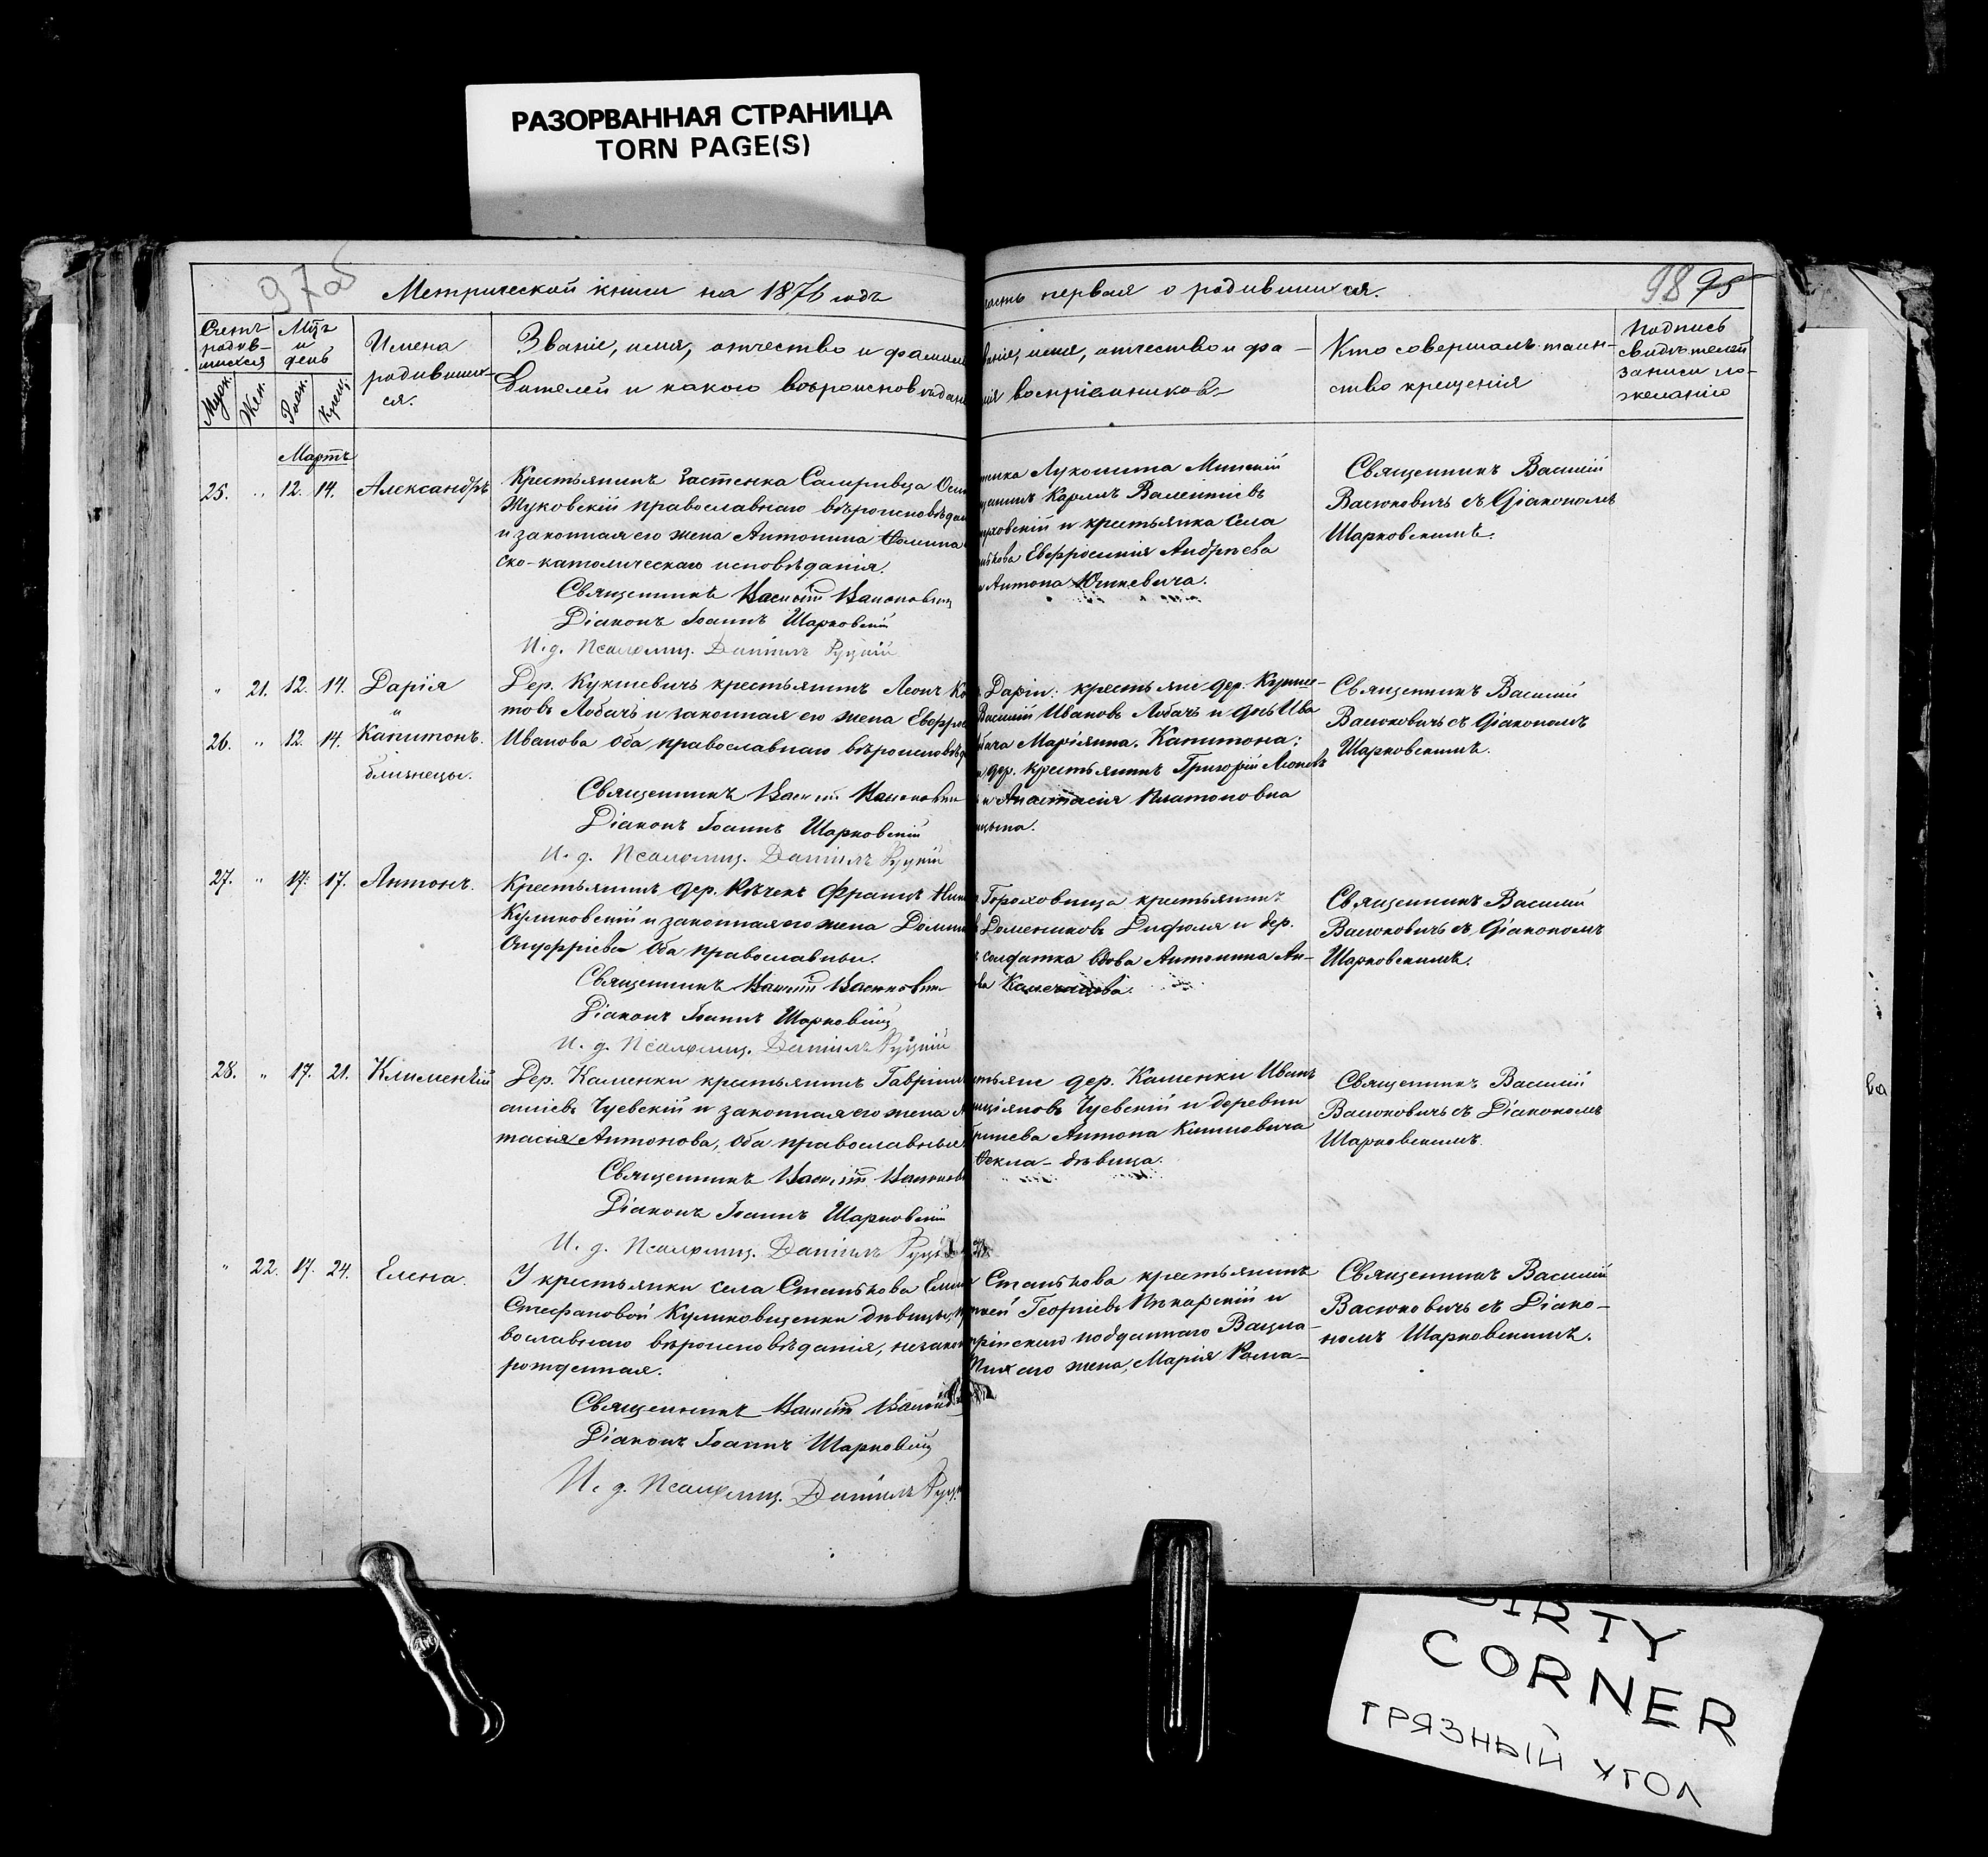 РАЗОРВАННАЯ СТРАНИЦА
TORN PAGE(S)
97об
Метрической книги на 1876 годъ
Счетъ родив-шихся
Мцъ и день
Имена родивших-ся.
Званіе, имя, отчество и фамилі
дителей и какого вѣроисповѣдані
Муж. Жен. Рожд. Крещ.
Мартъ
25. " 12. 14. Александръ
Крестьянинъ застенка Осип
Жуковскій православнаго вѣроисповѣдан
и законная его жена Антонина
ско-католическаго исповѣданія.
Священникъ Василій Васюкович
Діаконъ Іоаннъ Шарковскій
И. д. Псаломщ. Даніилъ Руцкій
" 21. 12. 14. Дарія
и
26. " 12. 14. Капитонъ.
близнецы.
Дер. Кукшевичъ крестьянинъ Леонъ
товъ Лобачъ и законная его жена Евфро
Иванова оба православнаго вѣроисповѣд
Священникъ Василій Васюкович
Діаконъ Іоаннъ Шарковскій
И. д. Псаломщ. Даніилъ Руцкій
27. " 14. 17. Антонъ.
Крестьянинъ дер. Рѣчекъ Францъ
Куликовскій и законная его жена Домини
Онуфріева оба православные.
Священникъ Василій Васюкович
Діаконъ Іоаннъ Шарковскій
И. д. Псаломщ. Даніилъ Руцкій
28. " 17. 21. Климентій
Дер. Каменки крестьянинъ Гавріил
Чуевскій и законная его жена А
тасія Антонова, оба православные
Священникъ Василій Васюкови
Діаконъ Іоаннъ Шарковскій
И. д. Псаломщ. Даніилъ Руцкі
" 22. 17. 24. Елена.
У крестьянки села Станькова Елен
Стефановой дѣвицы, пр
вославнаго вѣроисповѣданія, незакон
рожденная.
Священникъ Василій
Діаконъ Іоаннъ Шарковскій
И. д. Псаломщ. Даніилъ Руцк
98 95
часть первая о родившихся.
ваніе, имя, отчество и фа-
лія воспріемниковъ
Кто совершалъ таин-
ство крещенія
Подпись
свидѣтелей
записи по
желанію
Минскій
щанинъ Карлъ Валентіевъ
и крестьянка села
нькова Евфросинія Андреева
Антона Юшкевича.
Священникъ Василій
Васюковичъ съ Діакономъ
Шарковскимъ.
Даріи: крестьяне дер. Кукше-
Василій Ивановъ Лобачъ и дочь Ива
бача Маріянна. Капитона:
дер. крестьянинъ Григорій Леоновъ
и Анастасія Платоновна
Священникъ Василій
Васюковичъ съ Діакономъ
Шарковскимъ.
Гороховища крестьянинъ
Домениковъ и дер.
солдатка вдова Антонина Ан-
Священникъ Василій
Васюковичъ съ Діакономъ
Шарковскимъ.
тьяне дер. Каменки Иванъ
Чуевскій и деревни
Антона Климовича
Ѳекла - дѣвица.
Священникъ Василій
Васюковичъ съ Діакономъ
Шарковскимъ.
Станькова крестьянинъ
Георгіевъ Пекарскій и
рійскаго подданнаго Вацла-
жена, Марія Рома-
Священникъ Василій
Васюковичъ съ Діако-
номъ Шарковскимъ.
DIRTY
CORNER
ГРЯЗНЫЙ УГОЛ